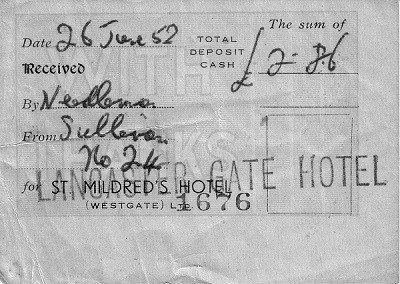 The sum of
Date 26 June 52
TOTAL
DEPOSIT
CASH
£ 2-
Received
WITH
By Needleman
From Sullivan
THANKS
No 24
LANCASTER GATE HOTEL
for ST. MILDRED'S HOTEL
(WESTGATE) LTD.
1676